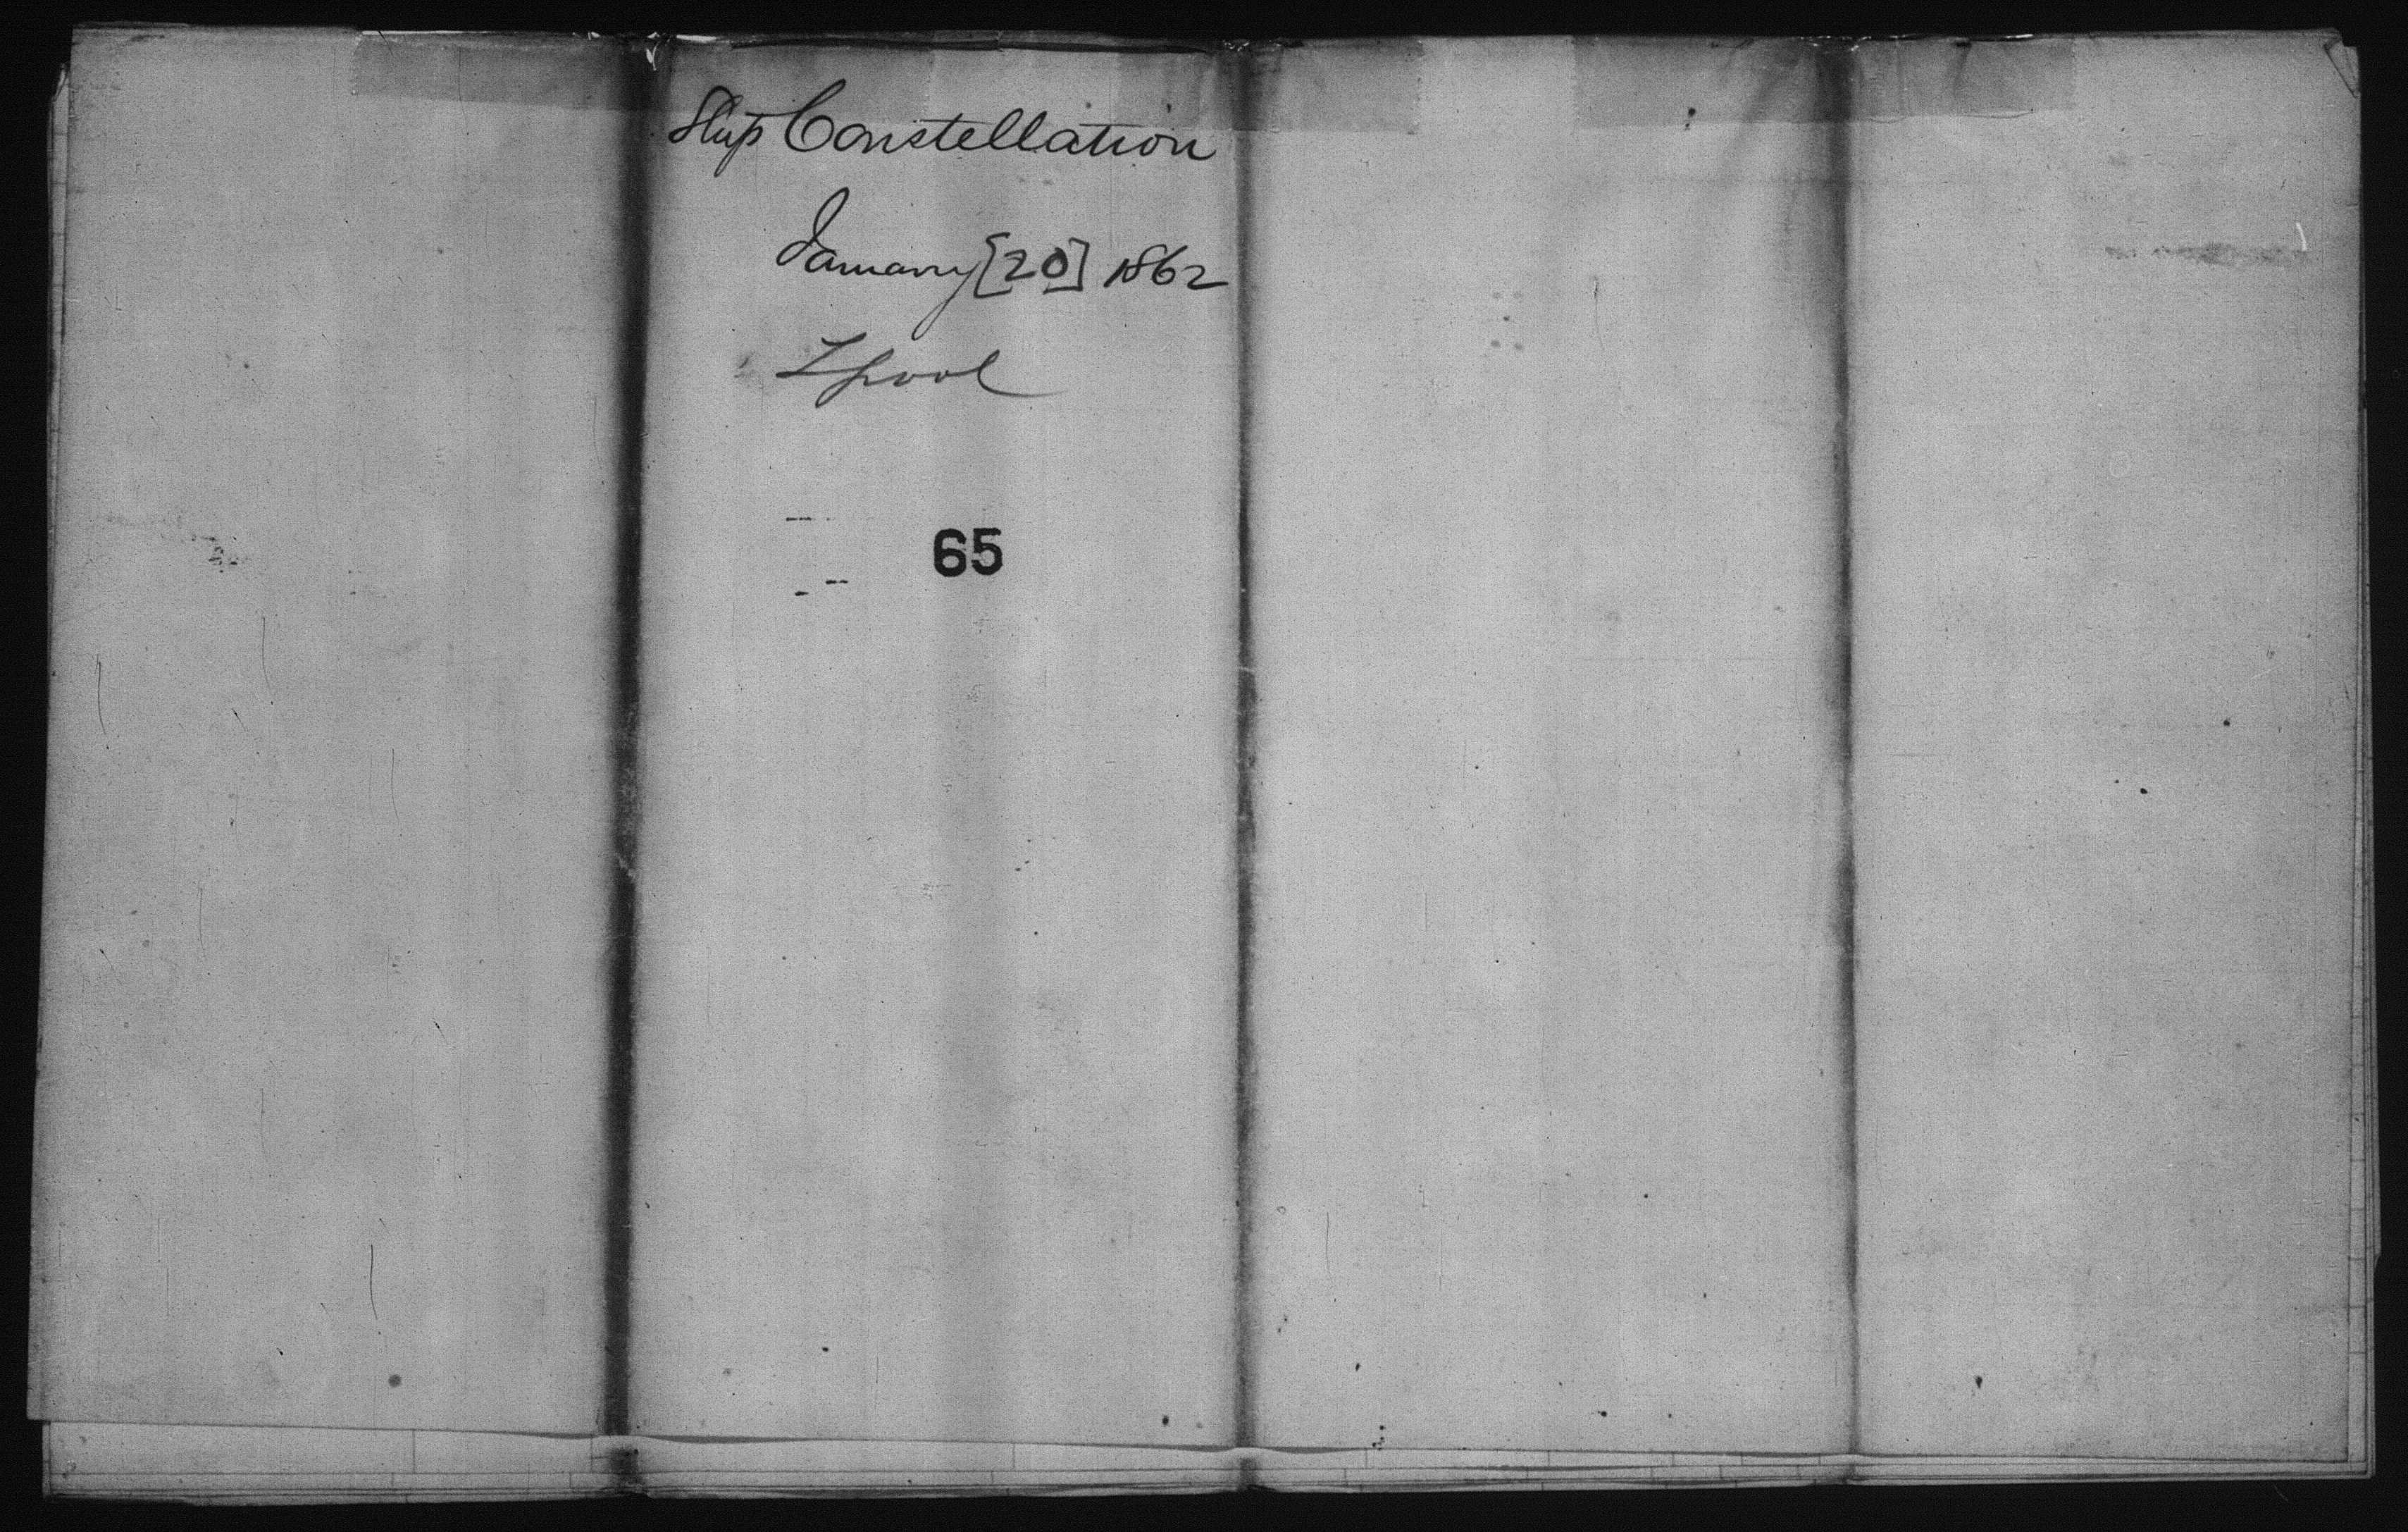 Ship Constellation
January [20] 1862
Lpool
65